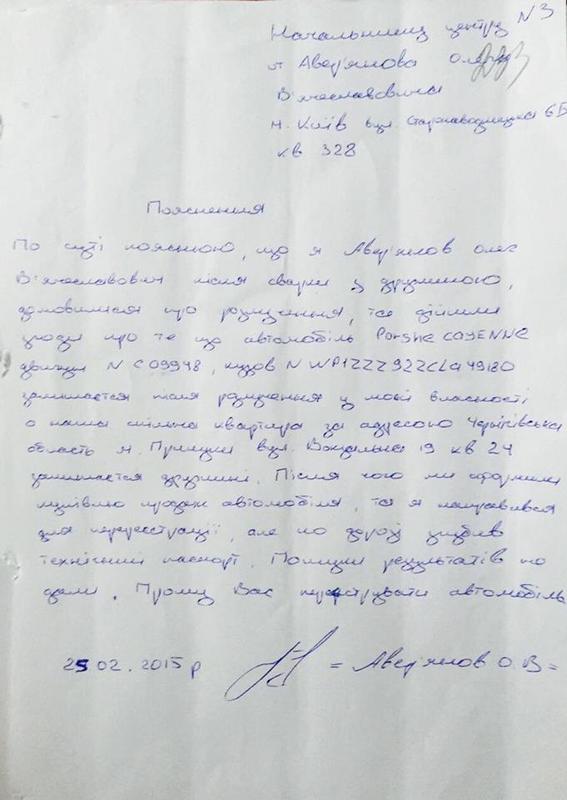 Начальнику центру N 3
от Авер'янова Олега
В'ячеславовича
м. Київ вул. Старонаводницька 6Б
кв 328
Пояснення
По суті поясню, що я Авер'янов Олег
В'ячеславович після сварки з дружиною,
домовилися про розлучення, та дійшли
угоди про те що автомобіль Porshe CAYENNE
двигун N C09948, кузов N WP1ZZZ92ZCLA49180
залишається після розлучення у моїй власності
а наша спільна квартира за адресою Чернігівська
область м. Прилуки вул. Вокзальна 19 кв 24
залишається дружині. Після чого ми оформили
купівлю продаж автомобіля, та я направився
для перереєстрації, але по дорозі загубив
технічний паспорт. Пошуки результатів не
дали. Прошу Вас автомобіль
25 02. 2015 р = Авер'янов О. В =